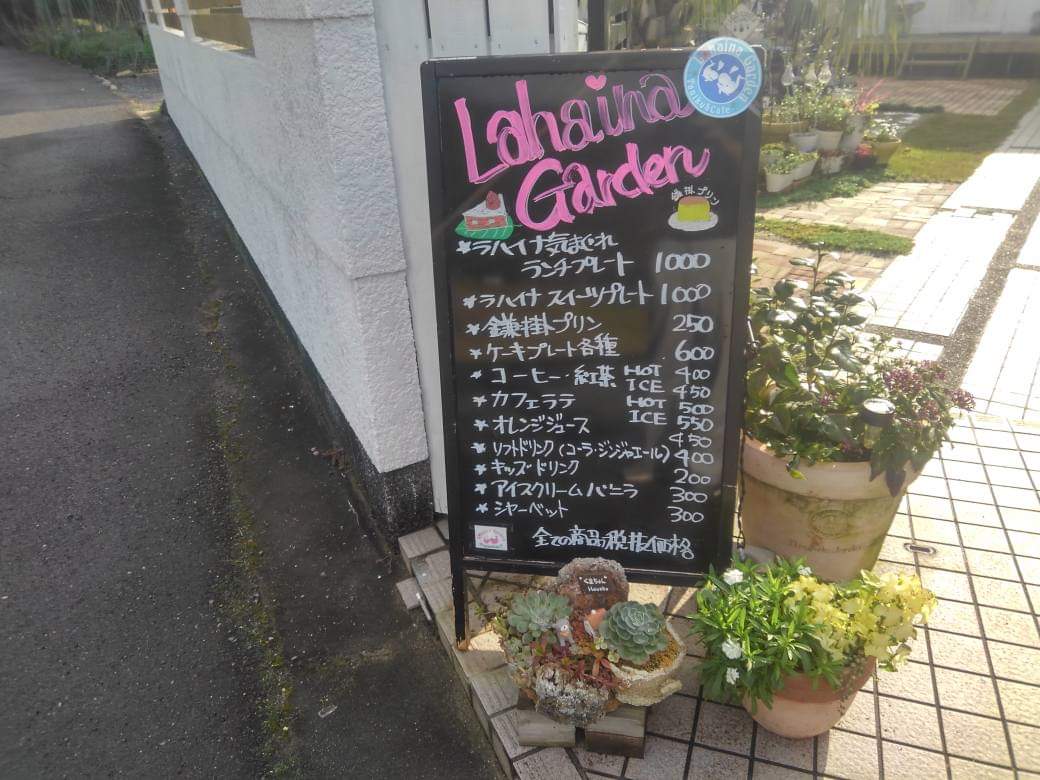 Lahaina Garden
PonikuSCafe
Lahaina
Garden
鎌掛プリン
★ラハイナ気まぐれ
ランチプレート 1000
★ラハイナ スイーツプレート 1000
★鎌掛プリン 250
★ケーキプレート各種 600
★コーヒー・紅茶 HOT 400
ICE 450
★カフェラテ HOT 500
ICE 550
★オレンジジュース 450
★ソフトドリンク(コーラ・ジンジャエール) 400
★キッズドリンク 200
★アイスクリームバニラ 300
★シャーベット 300
全ての商品税抜価格